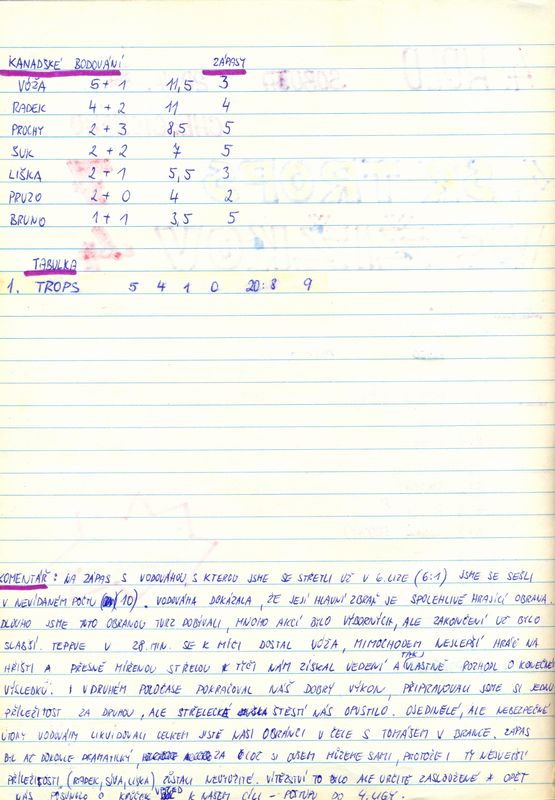 KANADSKÉ BODOVÁNÍ ZÁPASY
VÓŽA 5+1 11,5 3
RADEK 4+2 11 4
PROCHY 2+3 8,5 5
SUK 2+2 7 5
LIŠKA 2+1 5,5 3
PRUZO 2+0 4 2
BRUNO 1+1 3,5 5
TABULKA
1. TROPS 5 4 1 0 20:8 9
KOMENTÁŘ: NA ZÁPAS S VODOVÁHOU, S KTEROU JSME SE STŘETLI UŽ V 6. LIZE (6:1) JSME SE SEŠLI
V NEVÍDANÉM POČTU (10). VODOVÁHA DOKÁZALA, ŽE JEJÍ HLAVNÍ ZBRAŇ JE SPOLEHLIVĚ HRAJÍCÍ OBRANA.
DLOUHO JSME TUTO OBRANOU TVRZ DOBÝVALI, MNOHO AKCÍ BYLO VÝBORNÝCH, ALE ZAKONČENÍ UŽ BYLO
SLABŠÍ. TEPRVE V 28. MIN. SE K MÍČI DOSTAL VÓŽA, MIMOCHODEM NEJLEPŠÍ HRÁČ NA
HŘIŠTI A PŘESNĚ MÍŘENOU STŘELOU K TYČI NÁM ZÍSKAL VEDENÍ A TAK VLASTNĚ ROZHODL O KONEČNÉM
VÝSLEDKU. I V DRUHÉM POLOČASE POKRAČOVAL NÁŠ DOBRÝ VÝKON, PŘIPRAVOVALI JSME SI JEDNU
PŘÍLEŽITOST ZA DRUHOU, ALE STŘELECKÉ ŠTĚSTÍ NÁS OPUSTILO. OJEDINĚLÉ, ALE NEBEZPEČNÉ
ÚTOKY VODOVÁHY LIKVIDOVALI CELKEM JISTĚ NAŠI OBRÁNCI V ČELE S TOMÁŠEM V BRANCE. ZÁPAS
BYL AČ DOKONCE DRAMATICKÝ, ZA SI OVŠEM MŮŽEME SAMI, PROTOŽE I TY NEJVĚTŠÍ
PŘÍLEŽITOSTI (RADEK, SÝVA, LIŠKA) ZŮSTALI NEVYUŽITÉ. VÍTĚZSTVÍ TO BYLO ALE URČITĚ ZASLOUŽENÉ A OPĚT
NÁS POSUNULO O KRŮČEK VPŘED K NAŠEM CÍLI - POSTUPU DO 4. LIGY.